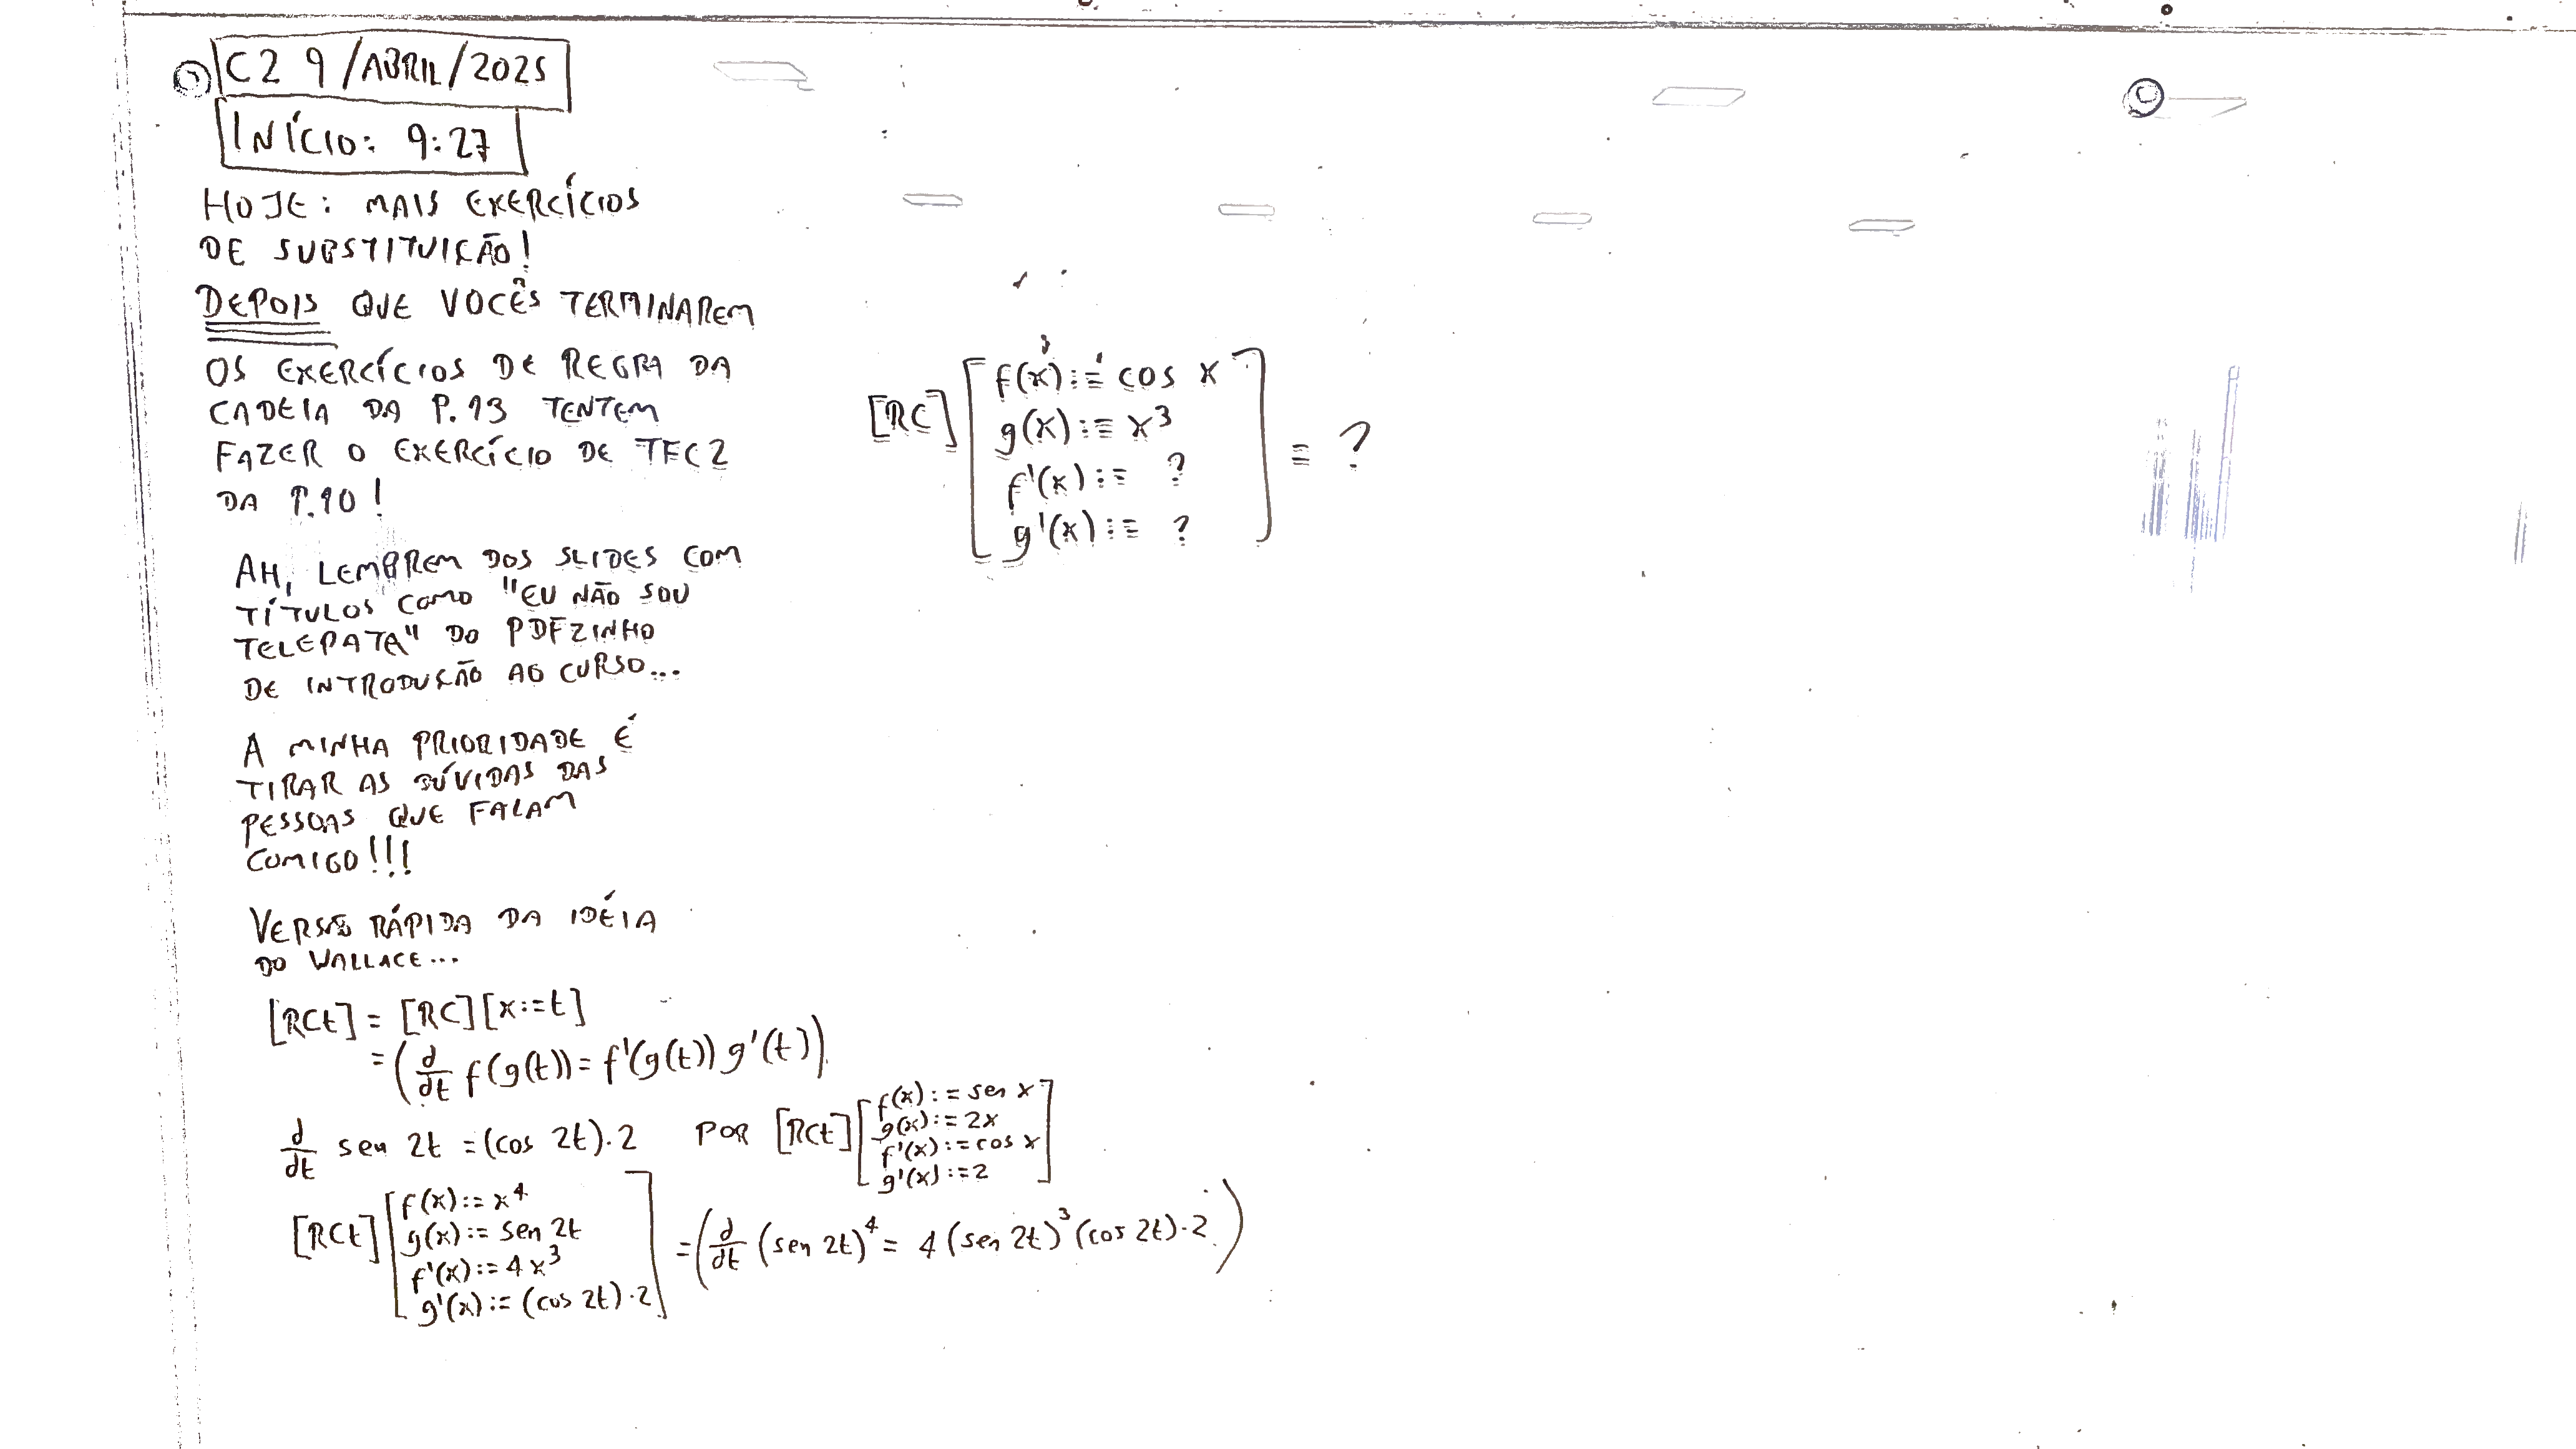 C2 9/ABRIL/2025
INÍCIO: 9:27
HOJE: MAIS EXERCÍCIOS
DE SUBSTITUIÇÃO!
DEPOIS QUE VOCÊS TERMINAREM
OS EXERCÍCIOS DE REGRA DA
CADEIA DA P.13 TENTEM
FAZER O EXERCÍCIO DE TFC2
DA P.10!
AH, LEMBREM DOS SLIDES COM
TÍTULOS COMO "EU NÃO SOU
TELEPATA" DO PDFZINHO
DE INTRODUÇÃO AO CURSO...
A MINHA PRIORIDADE É
TIRAR AS DÚVIDAS DAS
PESSOAS QUE FALAM
COMIGO!!!
VERSÃO RÁPIDA DA IDÉIA
DO WALLACE...
[RCt] = [RC][x:=t]
= (d/dt f(g(t)) = f'(g(t)) g'(t))
d/dt sen 2t = (cos 2t)·2 POR [RCt] [f(x):= sen x
g(x):= 2x
f'(x):= cos x
g'(x):= 2]
[RCt] [f(x):= x⁴
g(x):= sen 2t
f'(x):= 4x³
g'(x):= (cos 2t)·2] = (d/dt (sen 2t)⁴ = 4(sen 2t)³(cos 2t)·2)
[RC] [f(x):= cos x
g(x):= x³
f'(x):= ?
g'(x):= ?] = ?